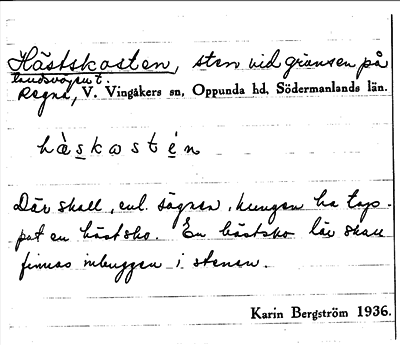 Hästskosten, sten vid gränsen på
landsväg t.
Regna, V. Vingåkers sn, Oppunda hd, Södermanlands län.
hä̀skostén
Där skall, enl. sägnen, kungen ha tap-
pat en hästsko. En hästsko lär skall
finnas inhuggen i stenen.
Karin Bergström 1936.